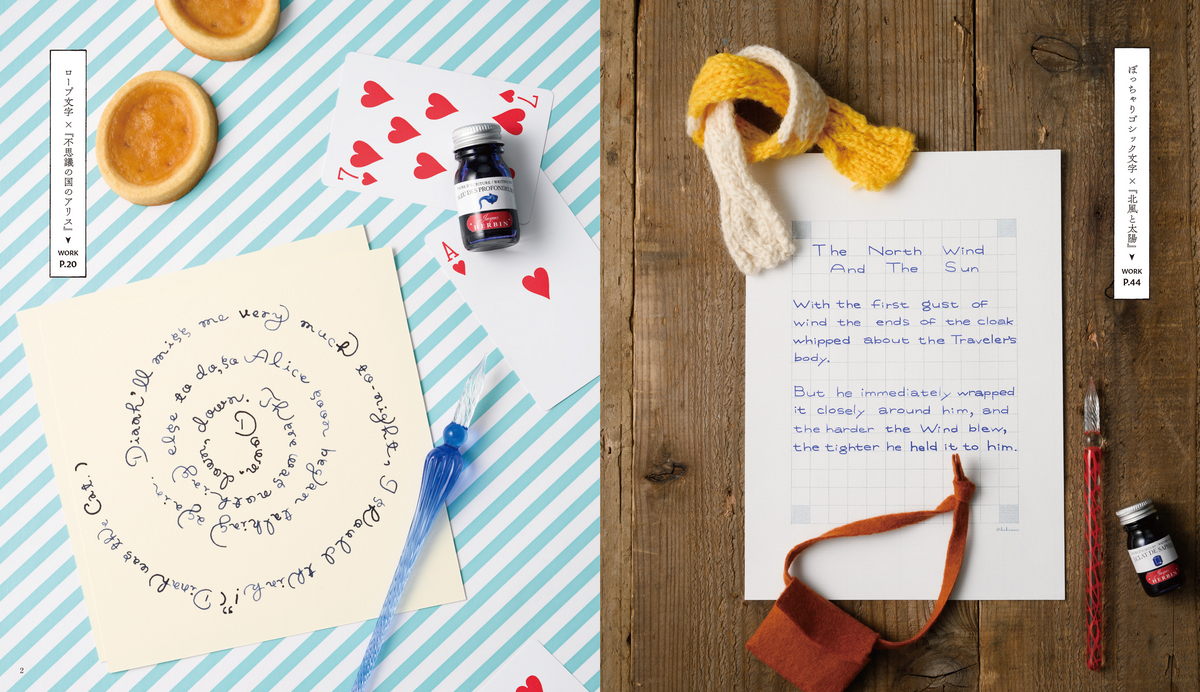 ロープ文字×『不思議の国のアリス』
WORK
P.20
7
7
A
BLEU DES PROFONDEURS
Jacques
HERBIN
Down, down, down. There was nothing else to do, so Alice soon began talking again. "Dinah'll miss me very much to-night, I should think!" (Dinah was the cat.)
2
ぽっちゃりゴシック文字×『北風と太陽』
WORK
P.44
The North Wind
And The Sun
With the first gust of
wind the ends of the cloak
whipped about the Traveler's
body.
But he immediately wrapped
it closely around him, and
the harder the Wind blew,
the tighter he held it to him.
ÉCLAT DE SAPHIR
Jacques
HERBIN